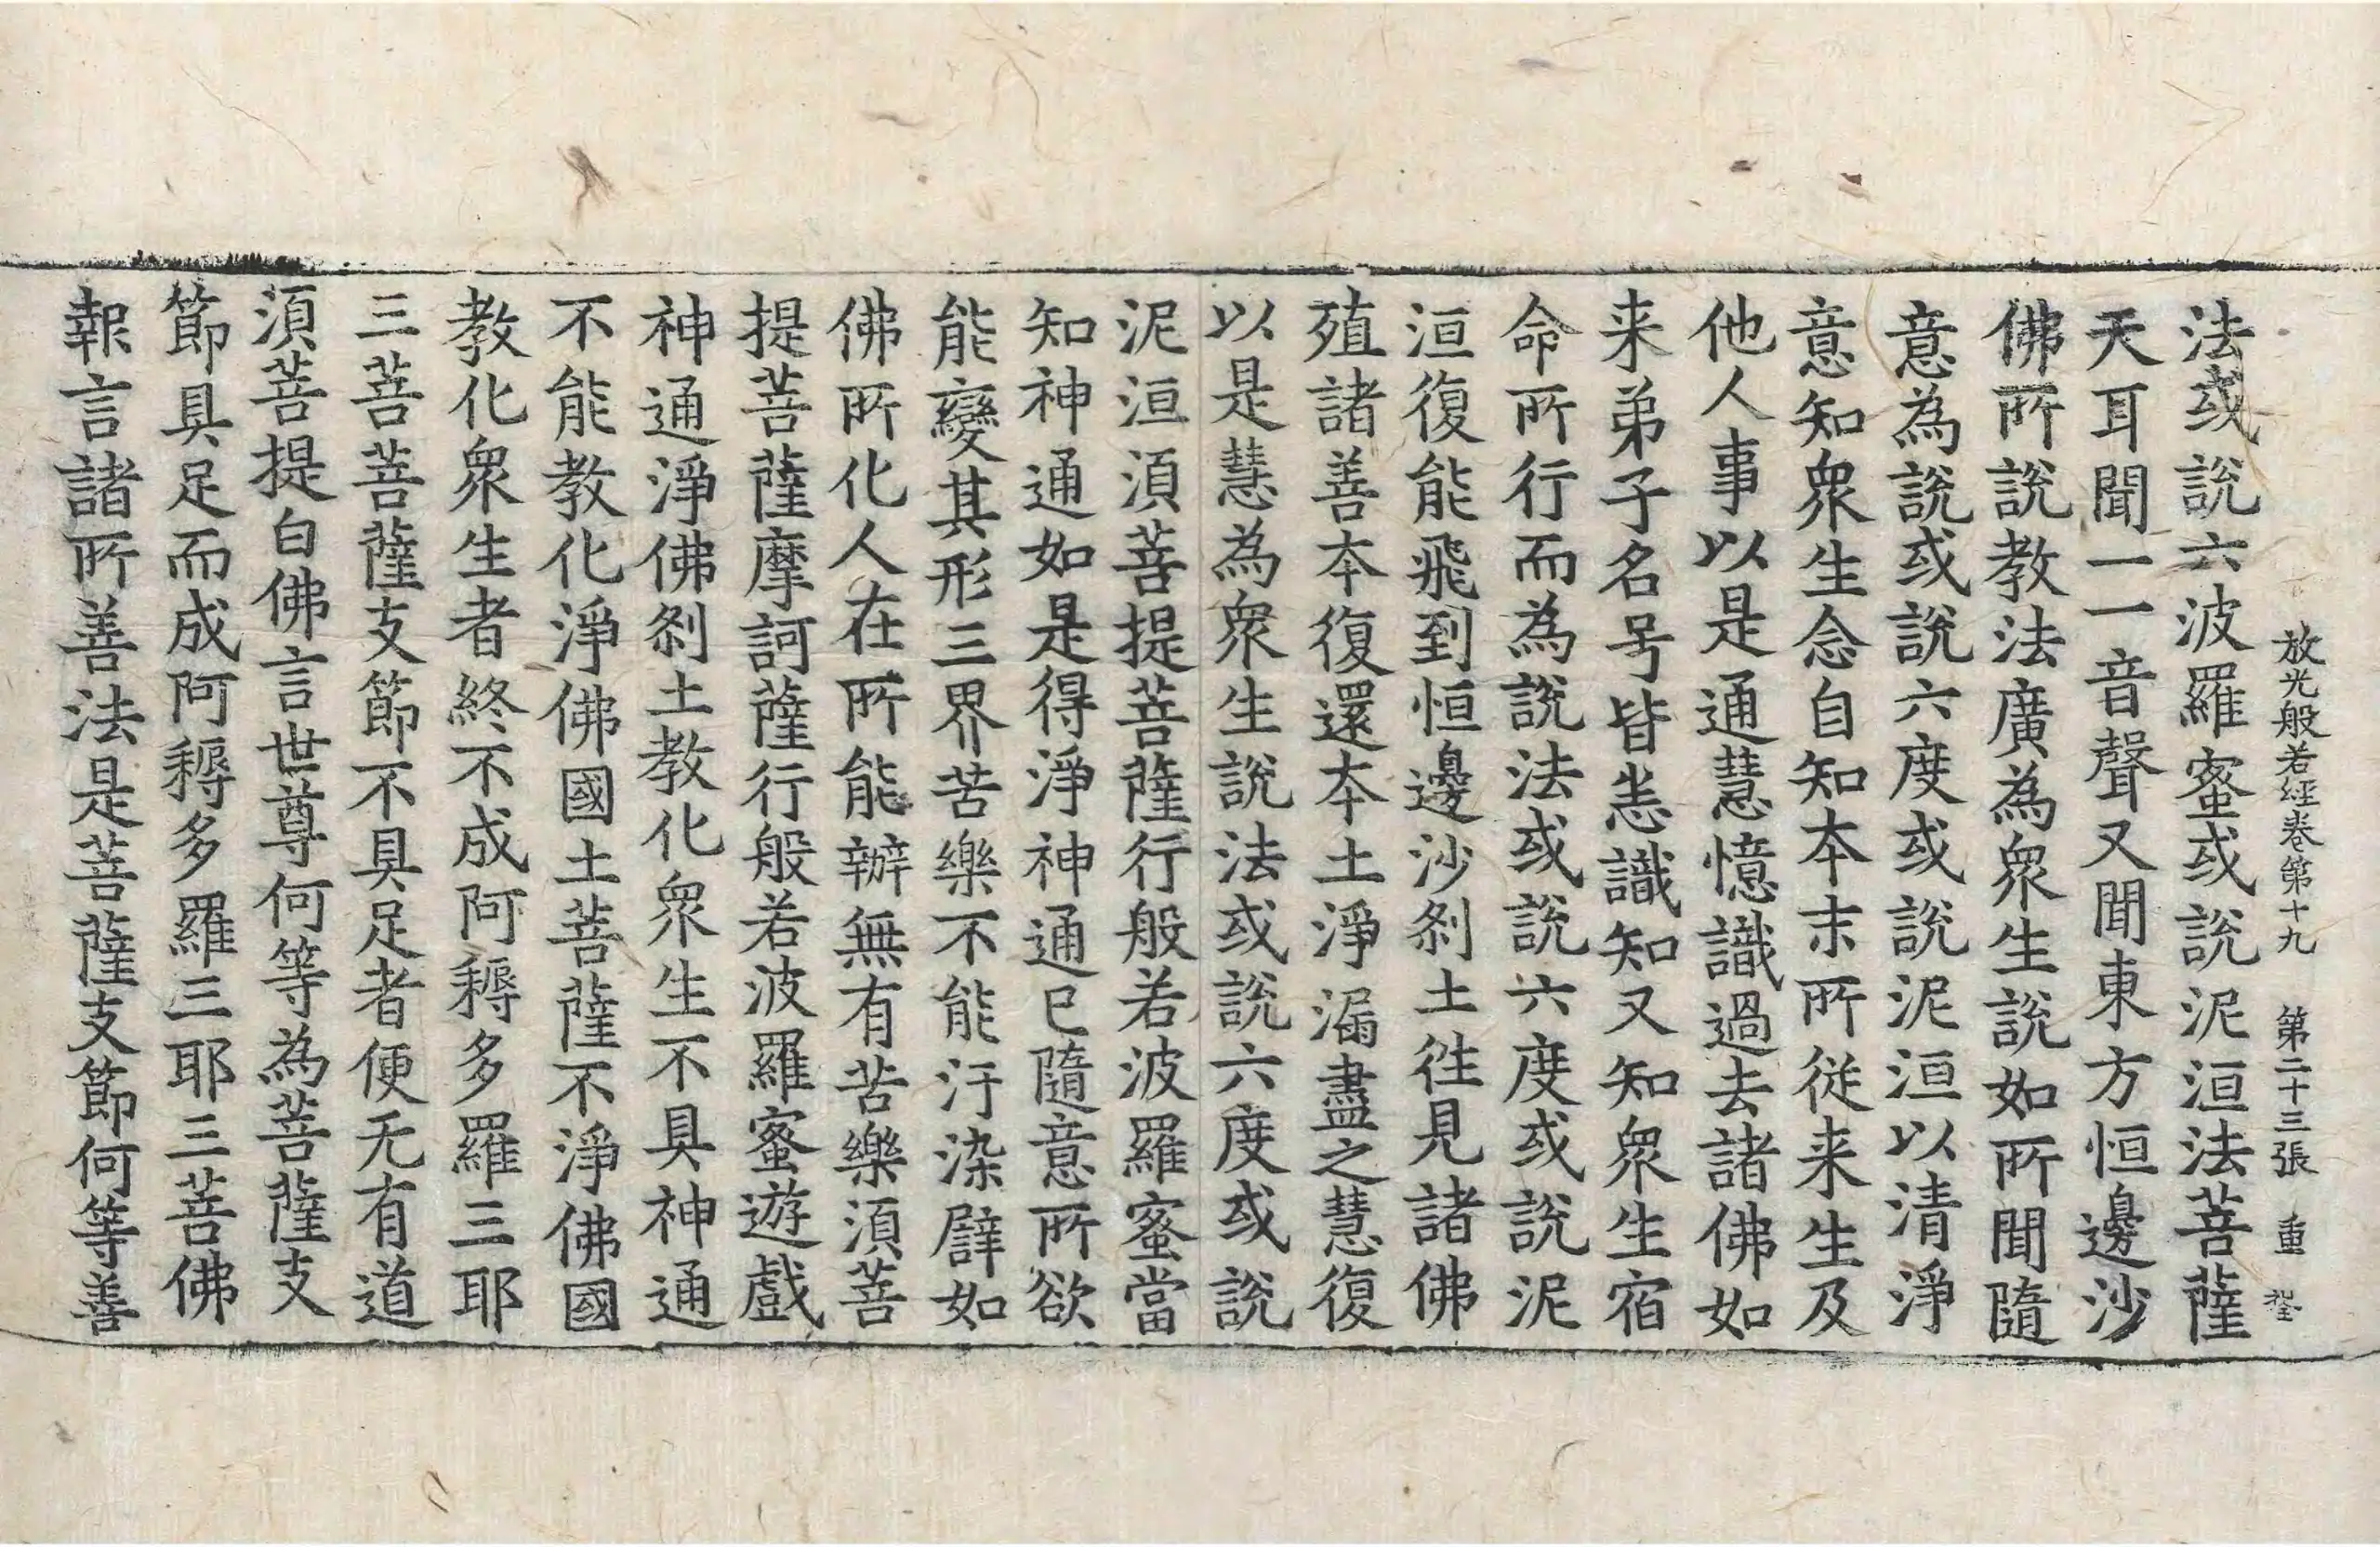 放光般若經卷第十九 第二十三張 重
法或說六波羅蜜或說泥洹法菩薩
天耳聞一一音聲又聞東方恒邊沙
佛所說教法廣為衆生說如所聞隨
意為說或說六度或說泥洹以清淨
意知衆生念自知本末所從来生及
他人事以是通慧憶識過去諸佛如
来弟子名号皆悉識知又知衆生宿
命所行而為說法或說六度或說泥
洹復能飛到恒邊沙刹土徃見諸佛
殖諸善本復還本土淨漏盡之慧復
以是慧為衆生說法或說六度或說
泥洹湏菩提菩薩行般若波羅蜜當
知神通如是得淨神通已隨意所欲
能變其形三界苦樂不能汙染譬如
佛所化人在所能辦無有苦樂湏菩
提菩薩摩訶薩行般若波羅蜜遊戲
神通淨佛刹土教化衆生不具神通
不能教化淨佛國土菩薩不淨佛國
教化衆生者終不成阿耨多羅三耶
三菩菩薩支節不具足者便无有道
湏菩提白佛言世尊何等為菩薩支
節具足而成阿耨多羅三耶三菩佛
報言諸所善法是菩薩支節何等善